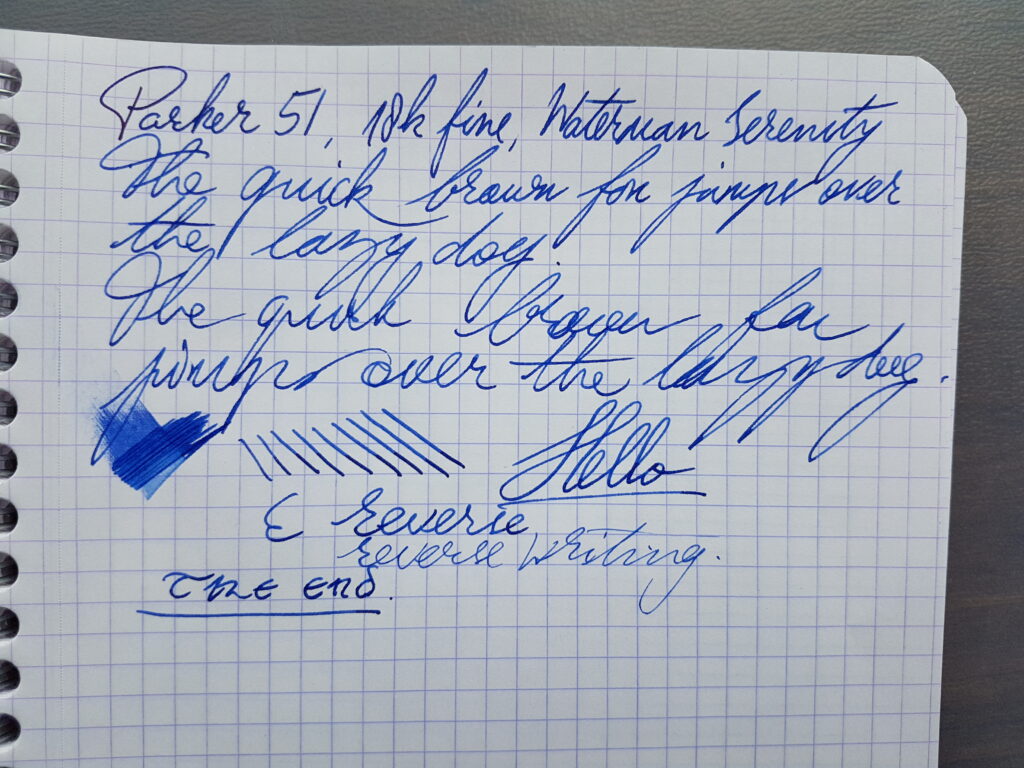 Parker 51, 18k fine, Waterman Serenity
The quick brown fox jumps over
the lazy dog.
The quick brown fox
jumps over the lazy dog.
Hello
E Reverse
reverse writing.
THE END.